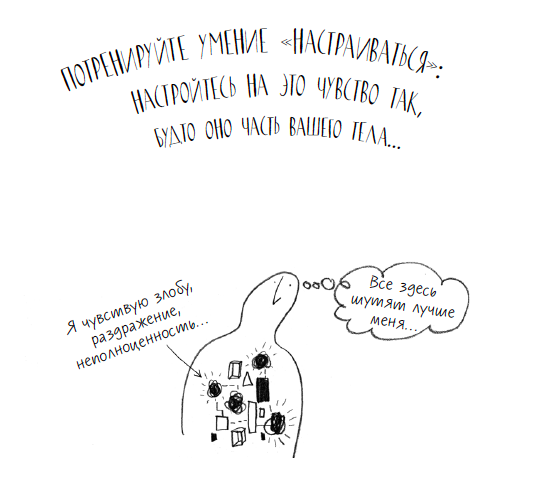 ПОТРЕНИРУЙТЕ УМЕНИЕ «НАСТРАИВАТЬСЯ»:
НАСТРОЙТЕСЬ НА ЭТО ЧУВСТВО ТАК,
БУДТО ОНО ЧАСТЬ ВАШЕГО ТЕЛА...
Я чувствую злобу,
раздражение,
неполноценность...
Все здесь
шутят лучше
меня...